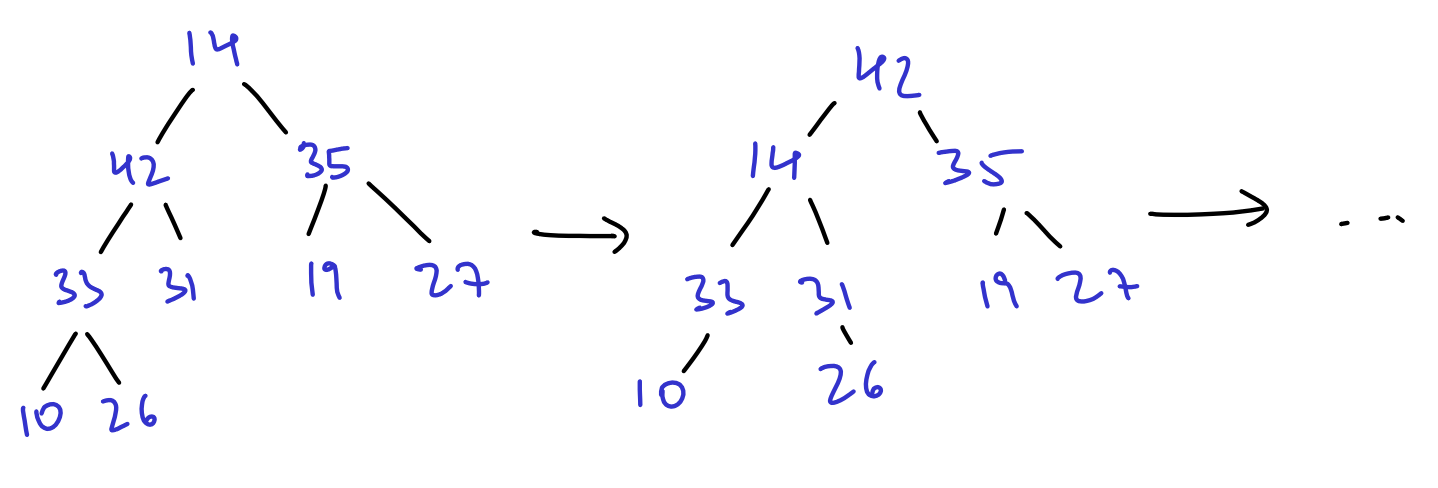 14
42 35
33 31 19 27
10 26
42
14 35
33 31 19 27
10 26
...